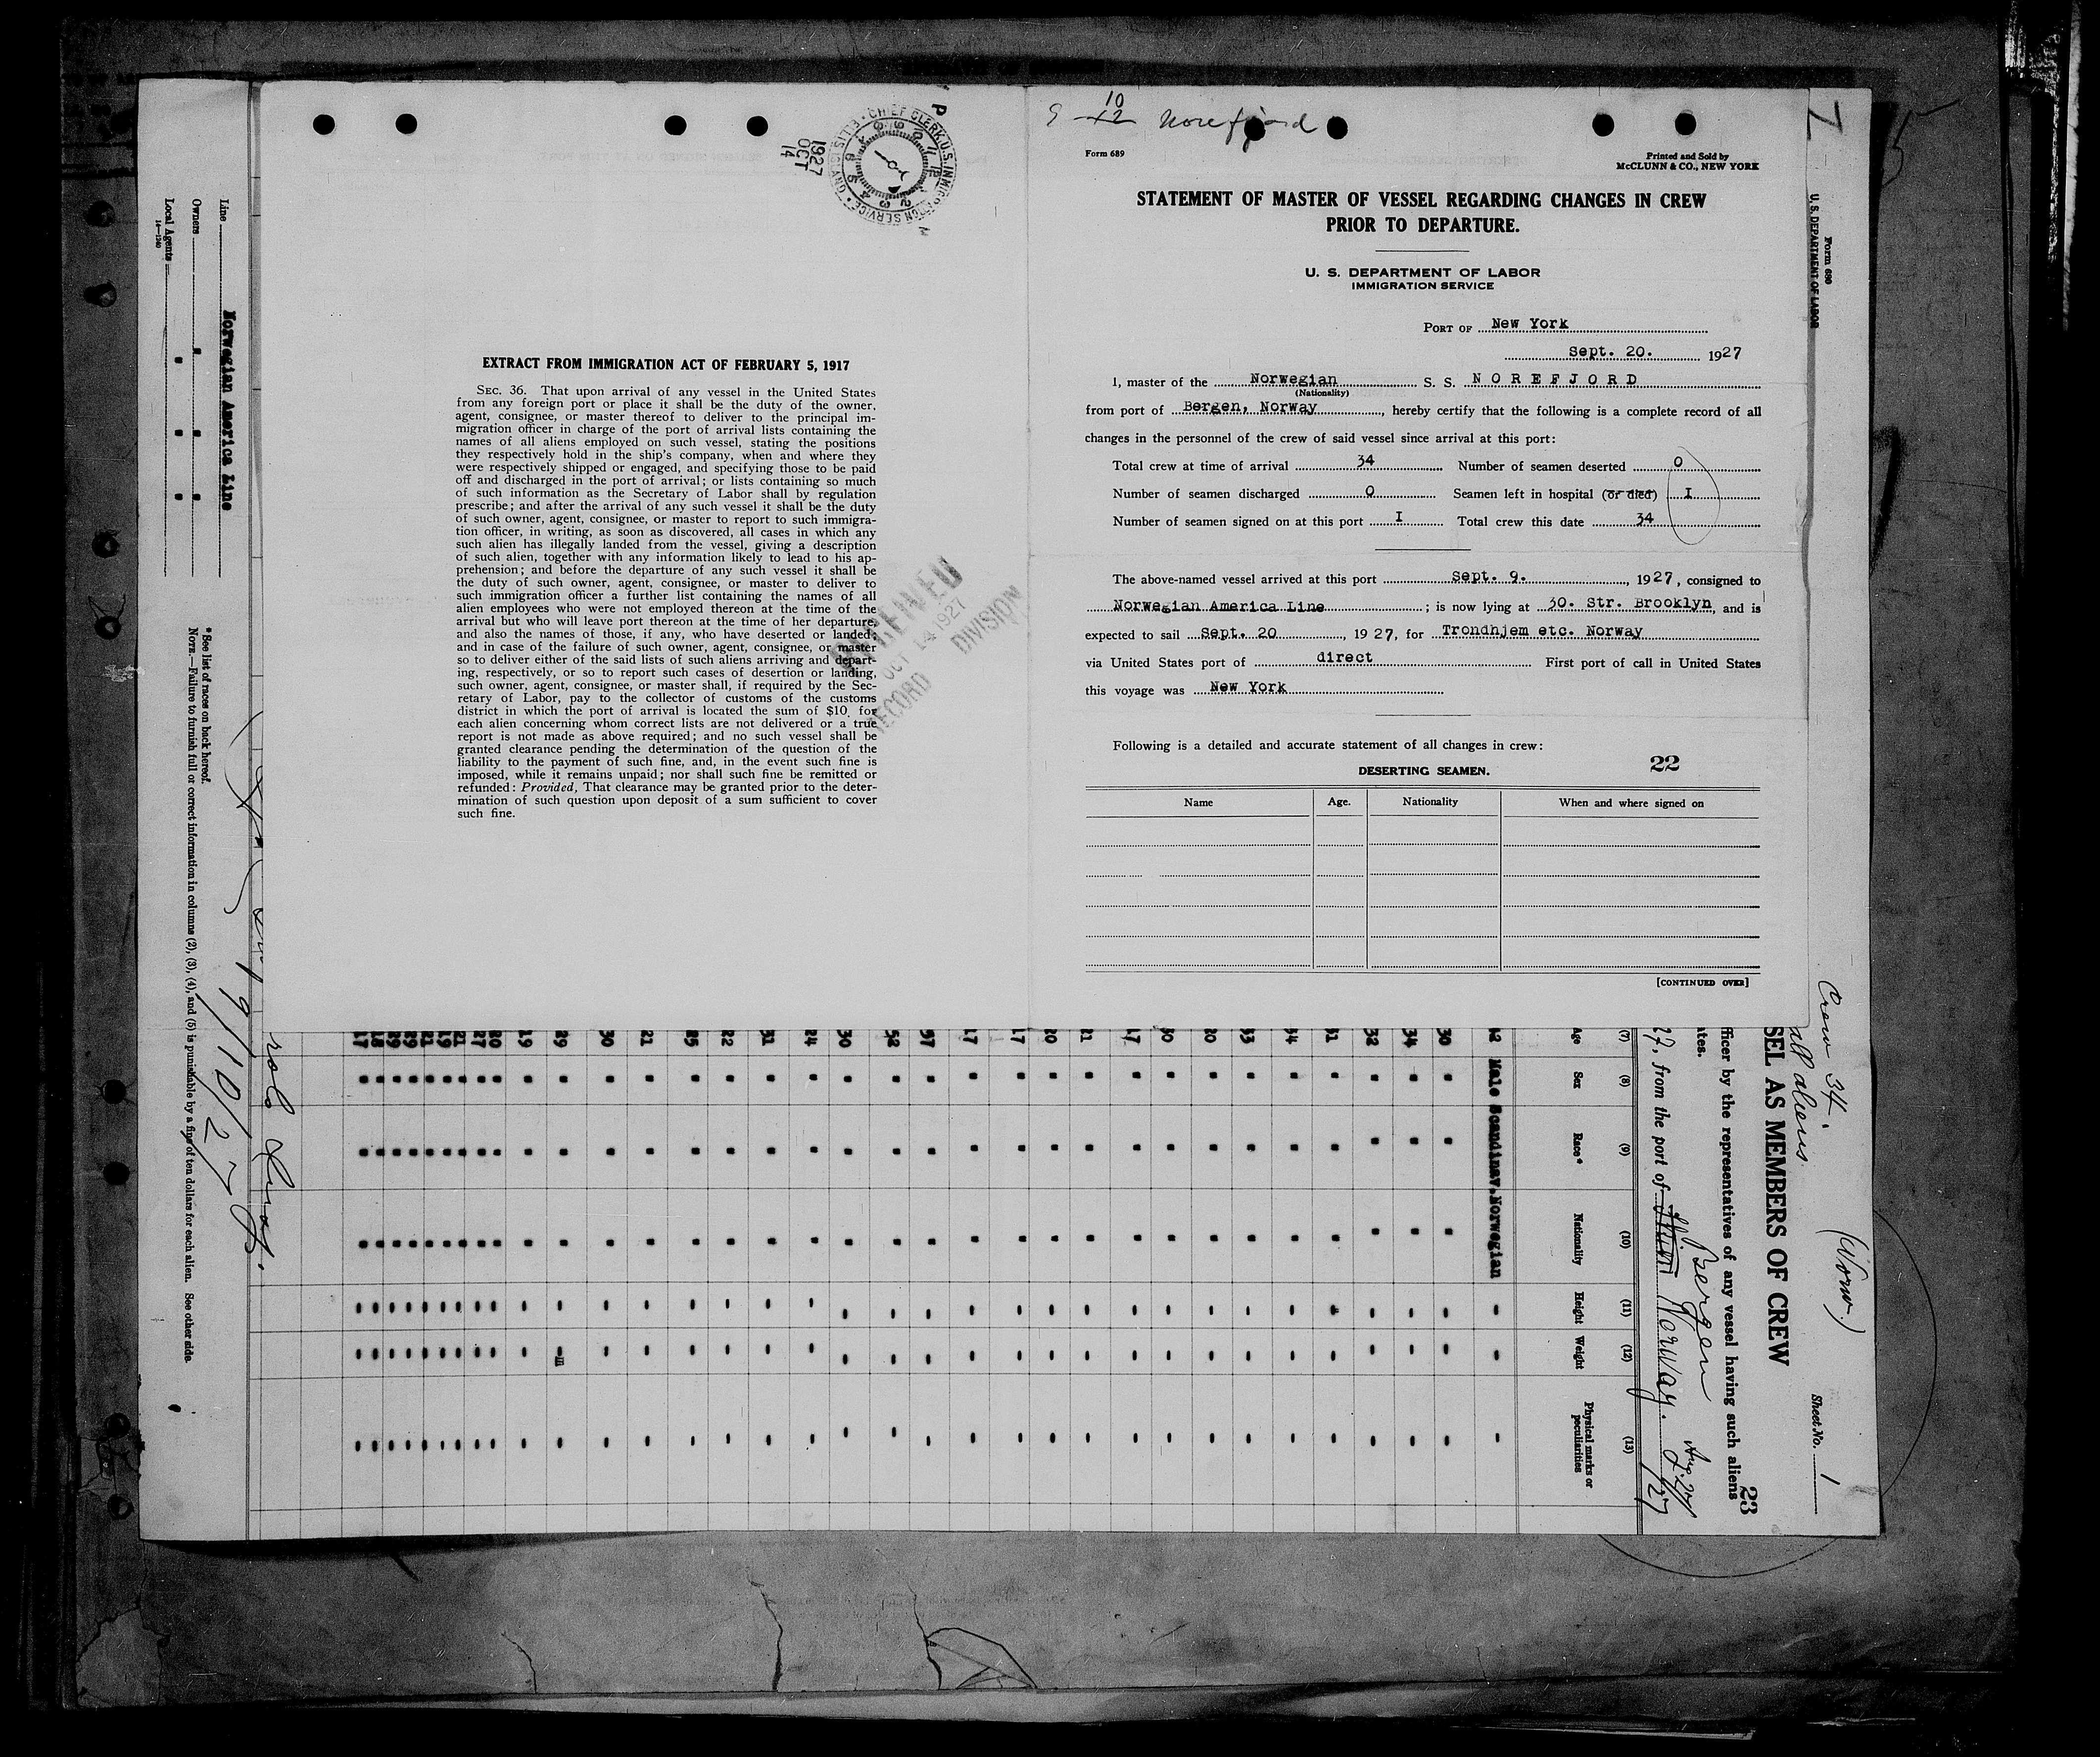 Norefjord
10
12
Form 689
Printed and Sold by
McCLUNN & CO., NEW YORK
STATEMENT OF MASTER OF VESSEL REGARDING CHANGES IN CREW
PRIOR TO DEPARTURE.
U. S. DEPARTMENT OF LABOR
IMMIGRATION SERVICE
PORT OF New York
Sept. 20. 1927
I, master of the Norwegian S. S. NOREFJORD
(Nationality)
from port of Bergen, Norway, hereby certify that the following is a complete record of all
changes in the personnel of the crew of said vessel since arrival at this port:
Total crew at time of arrival 34 Number of seamen deserted 0
Number of seamen discharged 0 Seamen left in hospital (or died) I
Number of seamen signed on at this port I Total crew this date 34
The above-named vessel arrived at this port Sept. 9. , 1927, consigned to
Norwegian America Line ; is now lying at 30. Str. Brooklyn, and is
expected to sail Sept. 20 , 1927, for Trondhjem etc. Norway
via United States port of direct First port of call in United States
this voyage was New York
Following is a detailed and accurate statement of all changes in crew:
DESERTING SEAMEN. 22
Name Age. Nationality When and where signed on
[CONTINUED OVER]
CHIEF CLERK U.S. IMMIGRATION SERVICE ELLIS ISLAND
1927
OCT
14
EXTRACT FROM IMMIGRATION ACT OF FEBRUARY 5, 1917
SEC. 36. That upon arrival of any vessel in the United States
from any foreign port or place it shall be the duty of the owner,
agent, consignee, or master thereof to deliver to the principal im-
migration officer in charge of the port of arrival lists containing the
names of all aliens employed on such vessel, stating the positions
they respectively hold in the ship's company, when and where they
were respectively shipped or engaged, and specifying those to be paid
off and discharged in the port of arrival; or lists containing so much
of such information as the Secretary of Labor shall by regulation
prescribe; and after the arrival of any such vessel it shall be the duty
of such owner, agent, consignee, or master to report to such immigra-
tion officer, in writing, as soon as discovered, all cases in which any
such alien has illegally landed from the vessel, giving a description
of such alien, together with any information likely to lead to his ap-
prehension; and before the departure of any such vessel it shall be
the duty of such owner, agent, consignee, or master to deliver to
such immigration officer a further list containing the names of all
alien employees who were not employed thereon at the time of the
arrival but who will leave port thereon at the time of her departure,
and also the names of those, if any, who have deserted or landed;
and in case of the failure of such owner, agent, consignee, or master
so to deliver either of the said lists of such aliens arriving and depart-
ing, respectively, or so to report such cases of desertion or landing,
such owner, agent, consignee, or master shall, if required by the Sec-
retary of Labor, pay to the collector of customs of the customs
district in which the port of arrival is located the sum of $10, for
each alien concerning whom correct lists are not delivered or a true
report is not made as above required; and no such vessel shall be
granted clearance pending the determination of the question of the
liability to the payment of such fine, and, in the event such fine is
imposed, while it remains unpaid; nor shall such fine be remitted or
refunded: Provided, That clearance may be granted prior to the deter-
mination of such question upon deposit of a sum sufficient to cover
such fine.
RECEIVED
OCT 14 1927
RECORD DIVISION
Form 680
U. S. DEPARTMENT OF LABOR
Crew 34.
all aliens
(Norw.)
Sheet No. 1
SEL AS MEMBERS OF CREW
23
fficer by the representatives of any vessel having such aliens
ates.
Bergen Aug. 27/27
27, from the port of Norway.
(7) (8) (9) (10) (11) (12) (13)
Age Sex Race* Nationality Height Weight Physical marks or
peculiarities
42 Male Scandinav. Norwegian
30
34
32
9/10/27
Line Norwegian America Line
Owners
Local Agents
14—1240
* See list of races on back hereof.
NOTE.—Failure to furnish full or correct information in columns (2), (3), (4), and (5) is punishable by a fine of ten dollars for each alien. See other side.